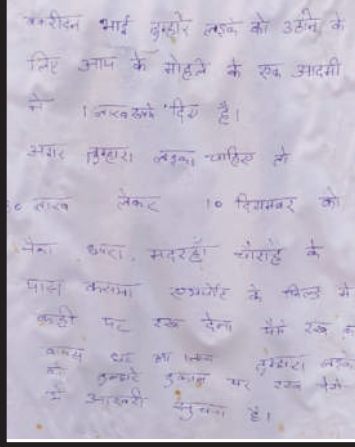 बकरीदन भाई तुम्हारे लड़के को उठाने के
लिए आप के मोहले के एक आदमी
ने 1 लाख रूपये दिए है।
अगर तुम्हारा लड़का चाहिए तो
लाख लेकर 10 दिसम्बर को
चौराहे के
पास के फिल्ड में
कही पर रख देना पैसे रख
वापस तुम्हारा लड़का
को तुम्हारे दुकान पर रख देंगे
ये आखरी सुचना है।